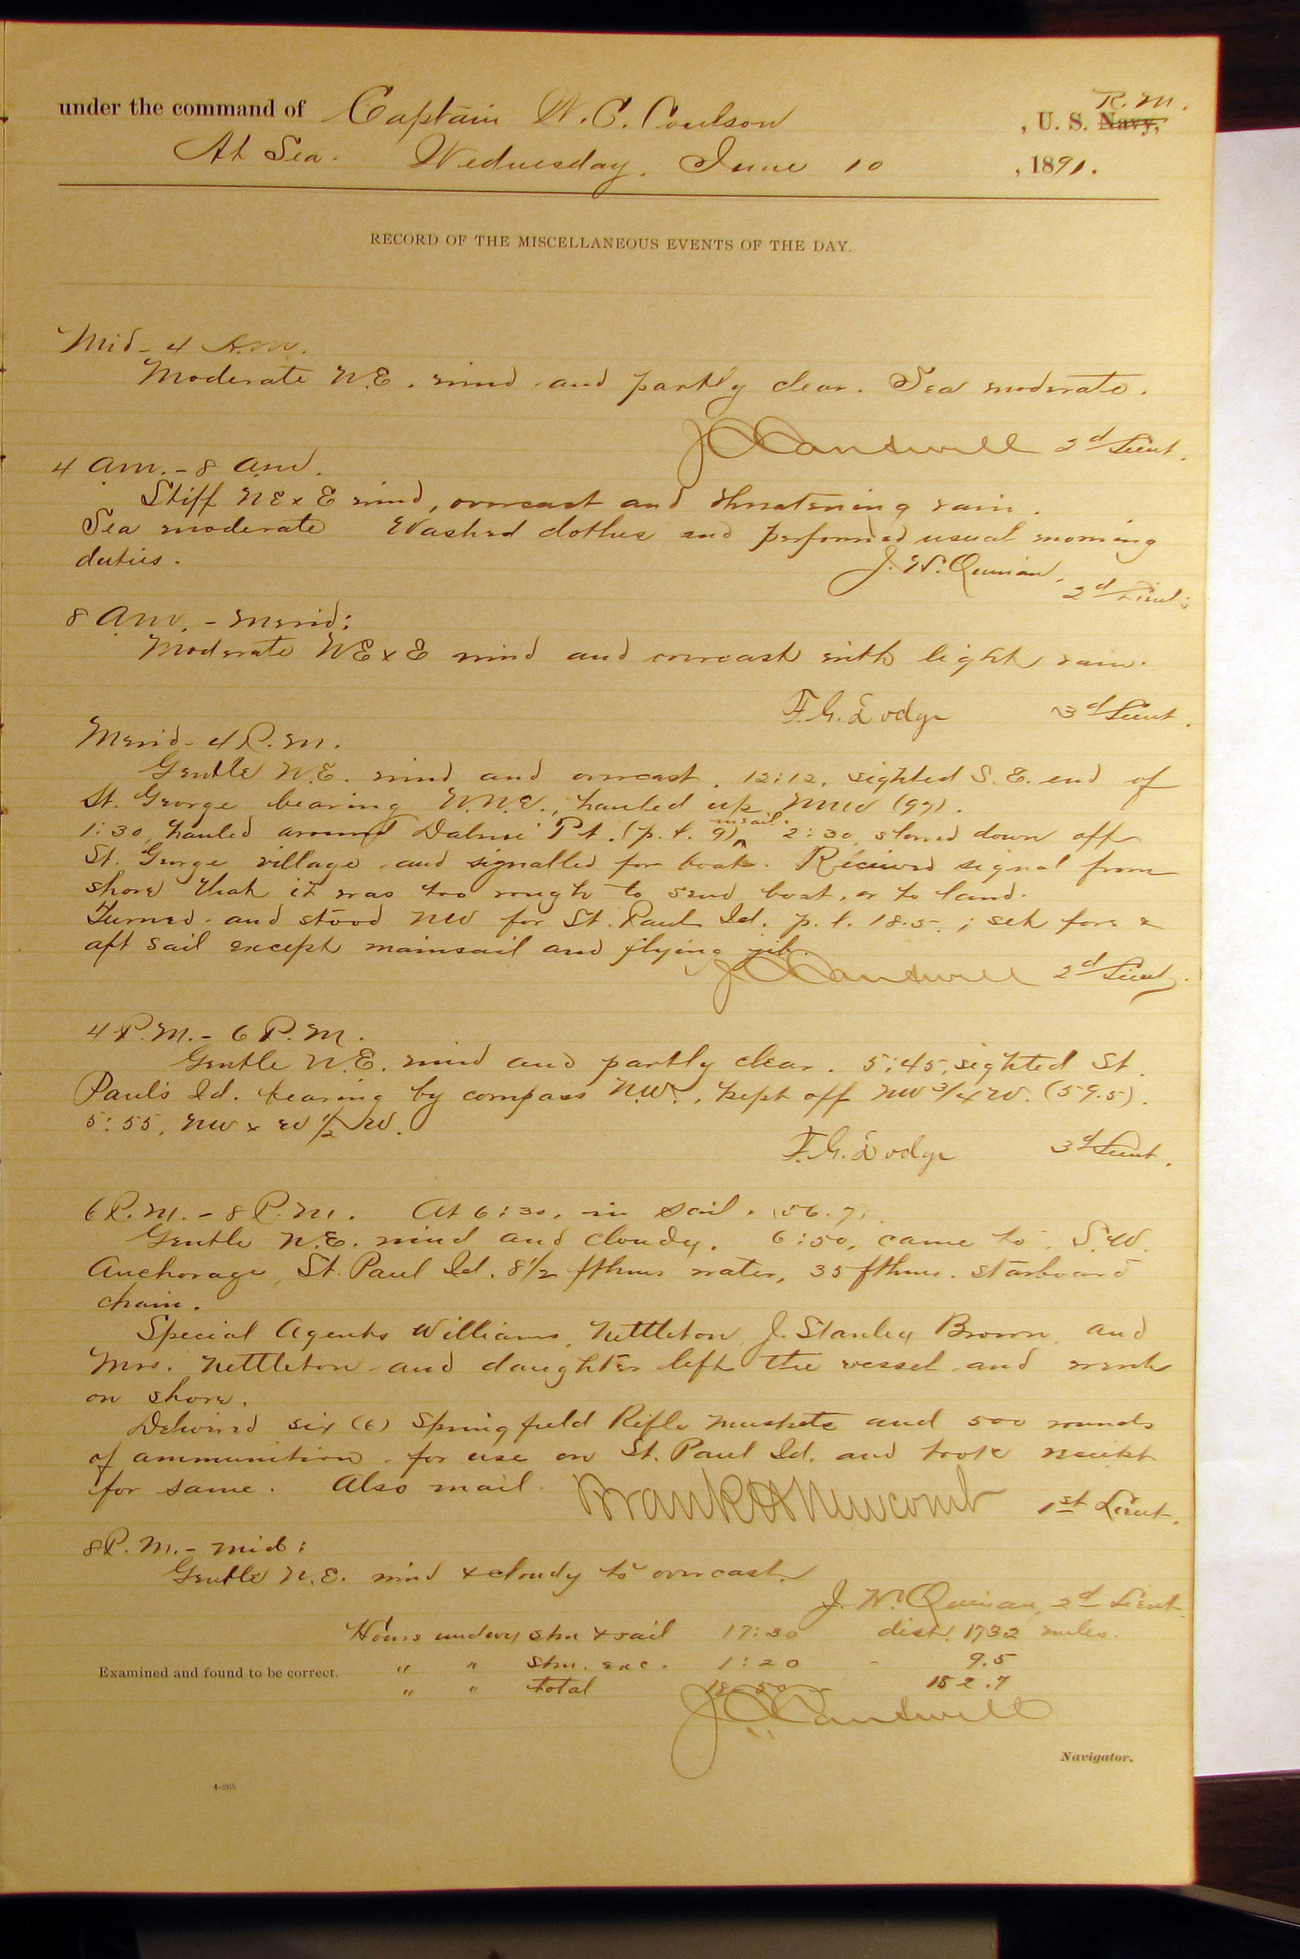 under the command of Captain W. C. Coulson , U. S. Navy, R. M.
At Sea. Wednesday, June 10 , 1891.
RECORD OF THE MISCELLANEOUS EVENTS OF THE DAY.
Mid - 4 A.M.
Moderate N.E. wind and partly clear. Sea moderate.
J C Cantwell 2d Lieut.
4 am. - 8 am.
Stiff NE x E wind, overcast and threatening rain.
Sea moderate Washed clothes and performed usual morning
duties. J. W. Quinan,
2d Lieut;
8 am. - merid:
Moderate NE x E wind and overcast with light rain.
F. G. Dodge 3d Lieut.
Merid - 4 P.M.
Gentle N.E. wind and overcast. 12:12, sighted S. E. end of
St. George bearing N.N.E., hauled up NNW (99).
1:30, hauled around Dalnoi Pt. (p. l. 9), in sail. 2:30, slowed down off
St. George village and signalled for boat. Received signal from
shore that it was too rough to send boat, or to land.
Turned and stood NW for St. Paul Id. p. l. 18.5.; set fore &
aft sail except mainsail and flying jib.
J C Cantwell 2d Lieut.
4 P.M. - 6 P.M.
Gentle N.E. wind and partly clear. 5:45, sighted St.
Paul's Id. bearing by compass N.W., kept off NW 3/4 W. (59.5).
5:55, NW x W 1/2 W.
F. G. Dodge 3d Lieut.
6 P.M. - 8 P.M. At 6:30, in sail. (56.7).
Gentle N.E. wind and cloudy. 6:50, came to, S.W.
Anchorage, St. Paul Id. 8 1/2 fthms water, 35 fthms. starboard
chain.
Special Agents Williams, Nettleton, J. Stanley Brown, and
Mrs. Nettleton and daughter left the vessel and went
on shore.
Delivered six (6) Springfield Rifle muskets and 500 rounds
of ammunition for use on St. Paul Id. and took receipt
for same. Also mail. Frank H Newcomb 1st Lieut.
8 P.M. - mid:
Gentle N.E. wind & cloudy to overcast.
J. W. Quinan, 2d Lieut.
Hours underway stm & sail 17:30 dist. 173.2 miles.
Examined and found to be correct. " " stm. exc. 1:20 - 9.5
" " total 18-50 - 182.7
J C Cantwell
Navigator.
4-205